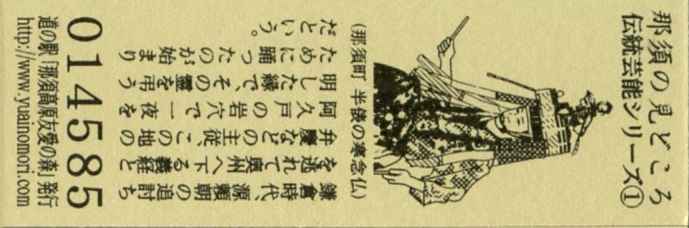 那須の見どころ
伝統芸能シリーズ①
(那須町 半俵の寒念仏)
鎌倉時代、源頼朝の追討ち
を逃れて奥州へ下る義経と
弁慶などの主従、この地の
阿久戸の岩穴で一夜を
明した縁で、その霊を弔う
ために踊ったのが始まり
だという。
014585
道の駅「那須高原友愛の森」発行
http://www.yuainomori.com